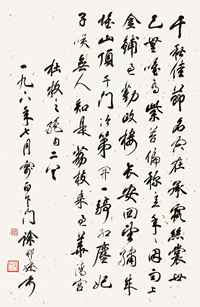 千秋佳節名空在承露絲囊世
已無唯有紫苔偏稱意年年因雨上
金鋪過勤政樓長安回望繡成
堆山頂千門次第開一騎紅塵妃
子笑無人知是荔枝來過華清宮
杜牧之絕句二首
一九八年七月